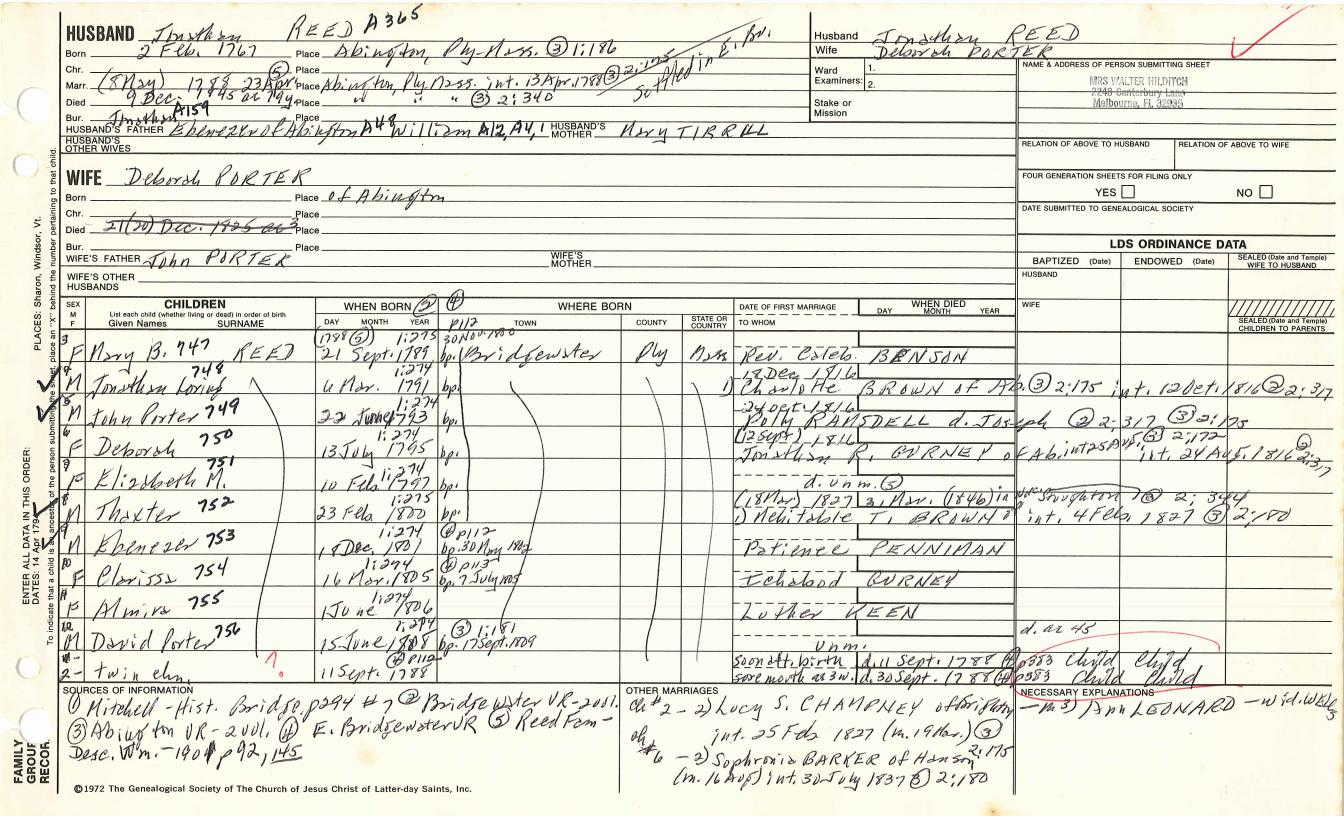 HUSBAND Jonathan REED A365
Born 2 Feb. 1767 Place Abington, Ply-Mass. ③ 1:186
Chr. Place
Marr. (8 May) 1788 23 Apr. ⑤ Place Abington, Ply Mass. int. 13 Apr. 1788 ③ 2:175 Settled in E. Br.
Died 9 Dec. 1845 ae 79y Place " " " ③ 2:340
Bur. Jonathan A159
HUSBAND'S FATHER Ebenezer of Abington A48 William A12, A4, 1 HUSBAND'S MOTHER Mary TIRRILL
HUSBAND'S OTHER WIVES
WIFE Deborah PORTER
Born Place of Abington
Chr. Place
Died 21(20) Dec. 1825 ae 3 Place
Bur. Place
WIFE'S FATHER John PORTER WIFE'S MOTHER
WIFE'S OTHER HUSBANDS
Husband Jonathan REED
Wife Deborah PORTER
Ward Examiners: 1. 2.
Stake or Mission
NAME & ADDRESS OF PERSON SUBMITTING SHEET
MRS WALTER HILDITCH
2248 Canterbury Lane
Melbourne, FL 32935
RELATION OF ABOVE TO HUSBAND RELATION OF ABOVE TO WIFE
FOUR GENERATION SHEETS FOR FILING ONLY
YES NO
DATE SUBMITTED TO GENEALOGICAL SOCIETY
LDS ORDINANCE DATA
BAPTIZED (Date) ENDOWED (Date) SEALED (Date and Temple) WIFE TO HUSBAND
HUSBAND
WIFE
SEALED (Date and Temple) CHILDREN TO PARENTS
SEX M F CHILDREN List each child (whether living or dead) in order of birth Given Names SURNAME WHEN BORN ② DAY MONTH YEAR ④ p112 WHERE BORN TOWN COUNTY STATE OR COUNTRY DATE OF FIRST MARRIAGE TO WHOM WHEN DIED DAY MONTH YEAR
3 F Mary B. 747 REED (1788 ⑤) 1:275 21 Sept. 1789 30 Nov. 1800 bp. Bridgewater Ply Mass Rev. Caleb BENSON
4 M Jonathan Loring 748 1:274 6 Mar. 1791 bp. 18 Dec. 1816 1) Charlotte BROWN of Ab. ③ 2:175 int. 12 Oct. 1816 ② 2:317
5 M John Porter 749 1:274 22 June 1793 bp. 24 Oct. 1816 Polly RAMSDELL d. Joseph ② 2:317 ③ 2:175
6 F Deborah 750 1:274 13 July 1795 bp. (12 Sept) 1816 Jonathan R. GURNEY of Ab. int 25 Aug. ③ 2:172 int. 24 Aug. 1816 ② 2:317
7 F Elizabeth M. 751 1:274 10 Feb 1797 bp. d. unm. ⑤
8 M Thaxter 752 1:275 23 Feb 1800 bp. (18 Mar) 1827 3. Mar. (1846) in Stoughton ③ 2:344
1) Mehitable T. BROWN of int. 4 Feb. 1827 ③ 2:180
9 M Ebenezer 753 1:274 18 Dec. 1801 ④ p112 bp. 30 May 1802 Patience PENNIMAN
10 F Clarissa 754 1:274 16 Mar. 1805 ④ p113 bp. 7 July 1805 Ichabod GURNEY
11 F Almira 755 1:274 1 June 1806 Luther KEEN
12 M David Porter 756 1:274 15 June 1808 ③ 1:181 bp. 17 Sept. 1809 unm. d. ae 45
1- 2- twin chn. ? ④ p112 11 Sept. 1788 soon aft. birth d. 11 Sept. 1788 ④ p383 Child Child
some month ae 3w. d. 30 Sept. 1788 ④ p383 Child Child
SOURCES OF INFORMATION
① Mitchell - Hist. Bridge. p294 #7 ② Bridgewater VR-2vol.
③ Abington VR-2vol. ④ E. Bridgewater VR ⑤ Reed Fam-
Desc. Wm.-1901 p92, 145
OTHER MARRIAGES
ch #2 - 2) Lucy S. CHAMPNEY of Brighton
int. 25 Feb 1827 (m. 19 Mar.) ③ 2:175
ch #6 - 2) Sophronia BARKER of Hanson
(m. 16 Aug) int. 30 July 1837 ③ 2:180
NECESSARY EXPLANATIONS
-m3) Ann LEONARD - wid.
©1972 The Genealogical Society of The Church of Jesus Christ of Latter-day Saints, Inc.
FAMILY GROUP RECOR.
ENTER ALL DATA IN THIS ORDER:
DATES: 14 Apr 1794
PLACES: Sharon, Windsor, Vt.
To indicate that a child is an ancestor of the person submitting the sheet, place an "X" behind the number pertaining to that child.